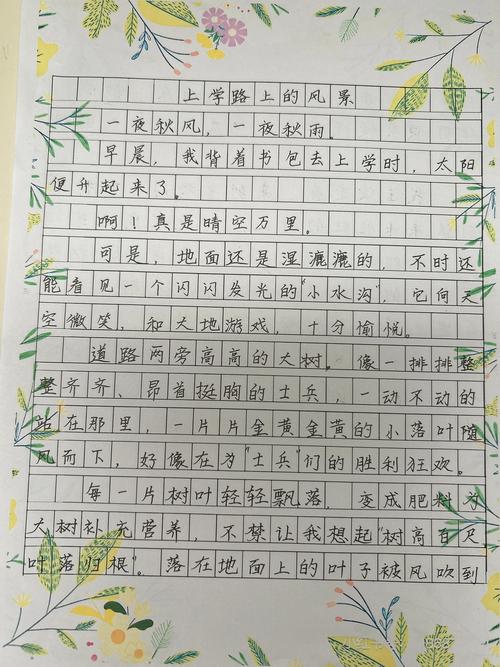 上学路上的风景
一夜秋风，一夜秋雨。
早晨，我背着书包去上学时，太阳
便升起来了。
啊！真是晴空万里。
可是，地面还是湿漉漉的，不时还
能看见一个闪闪发光的“小水沟”，它向天
空微笑，和大地游戏，十分愉悦。
道路两旁高高的大树。像一排排整
整齐齐、昂首挺胸的士兵，一动不动的
站在那里，一片片金黄金黄的小落叶随
风而下，好像在为“士兵”们的胜利狂欢。
每一片树叶轻轻飘落，变成肥料为
大树补充营养，不禁让我想起“树高百尺
叶落归根”。落在地面上的叶子被风吹到